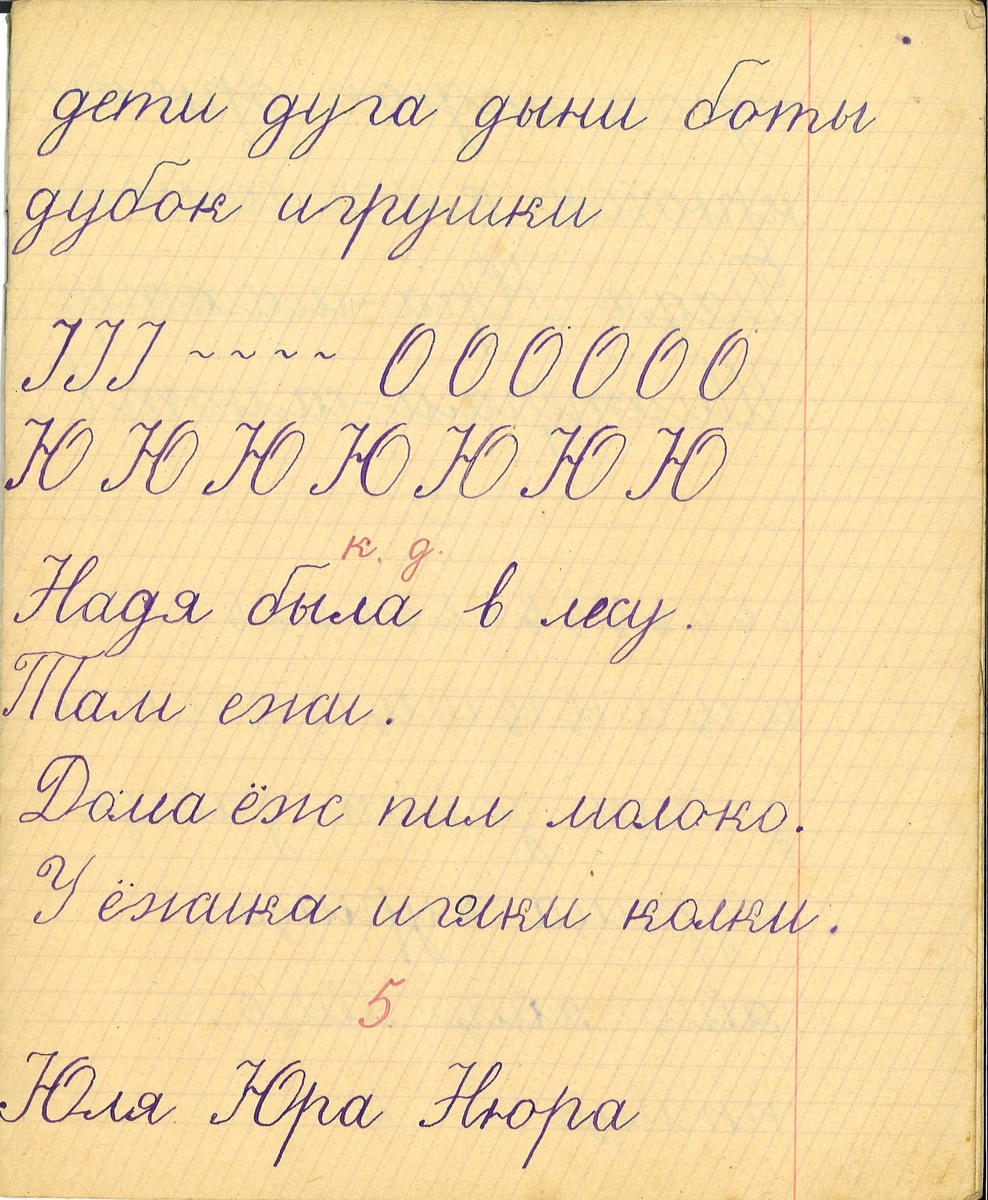 дети дуга дыни боты
дубок игрушки
Ю Ю Ю Ю Ю Ю Ю
к. д.
Надя была в лесу.
Там ежи.
Дома ёж пил молоко.
У ёжика иголки колки.
5
Юля Юра Нюра